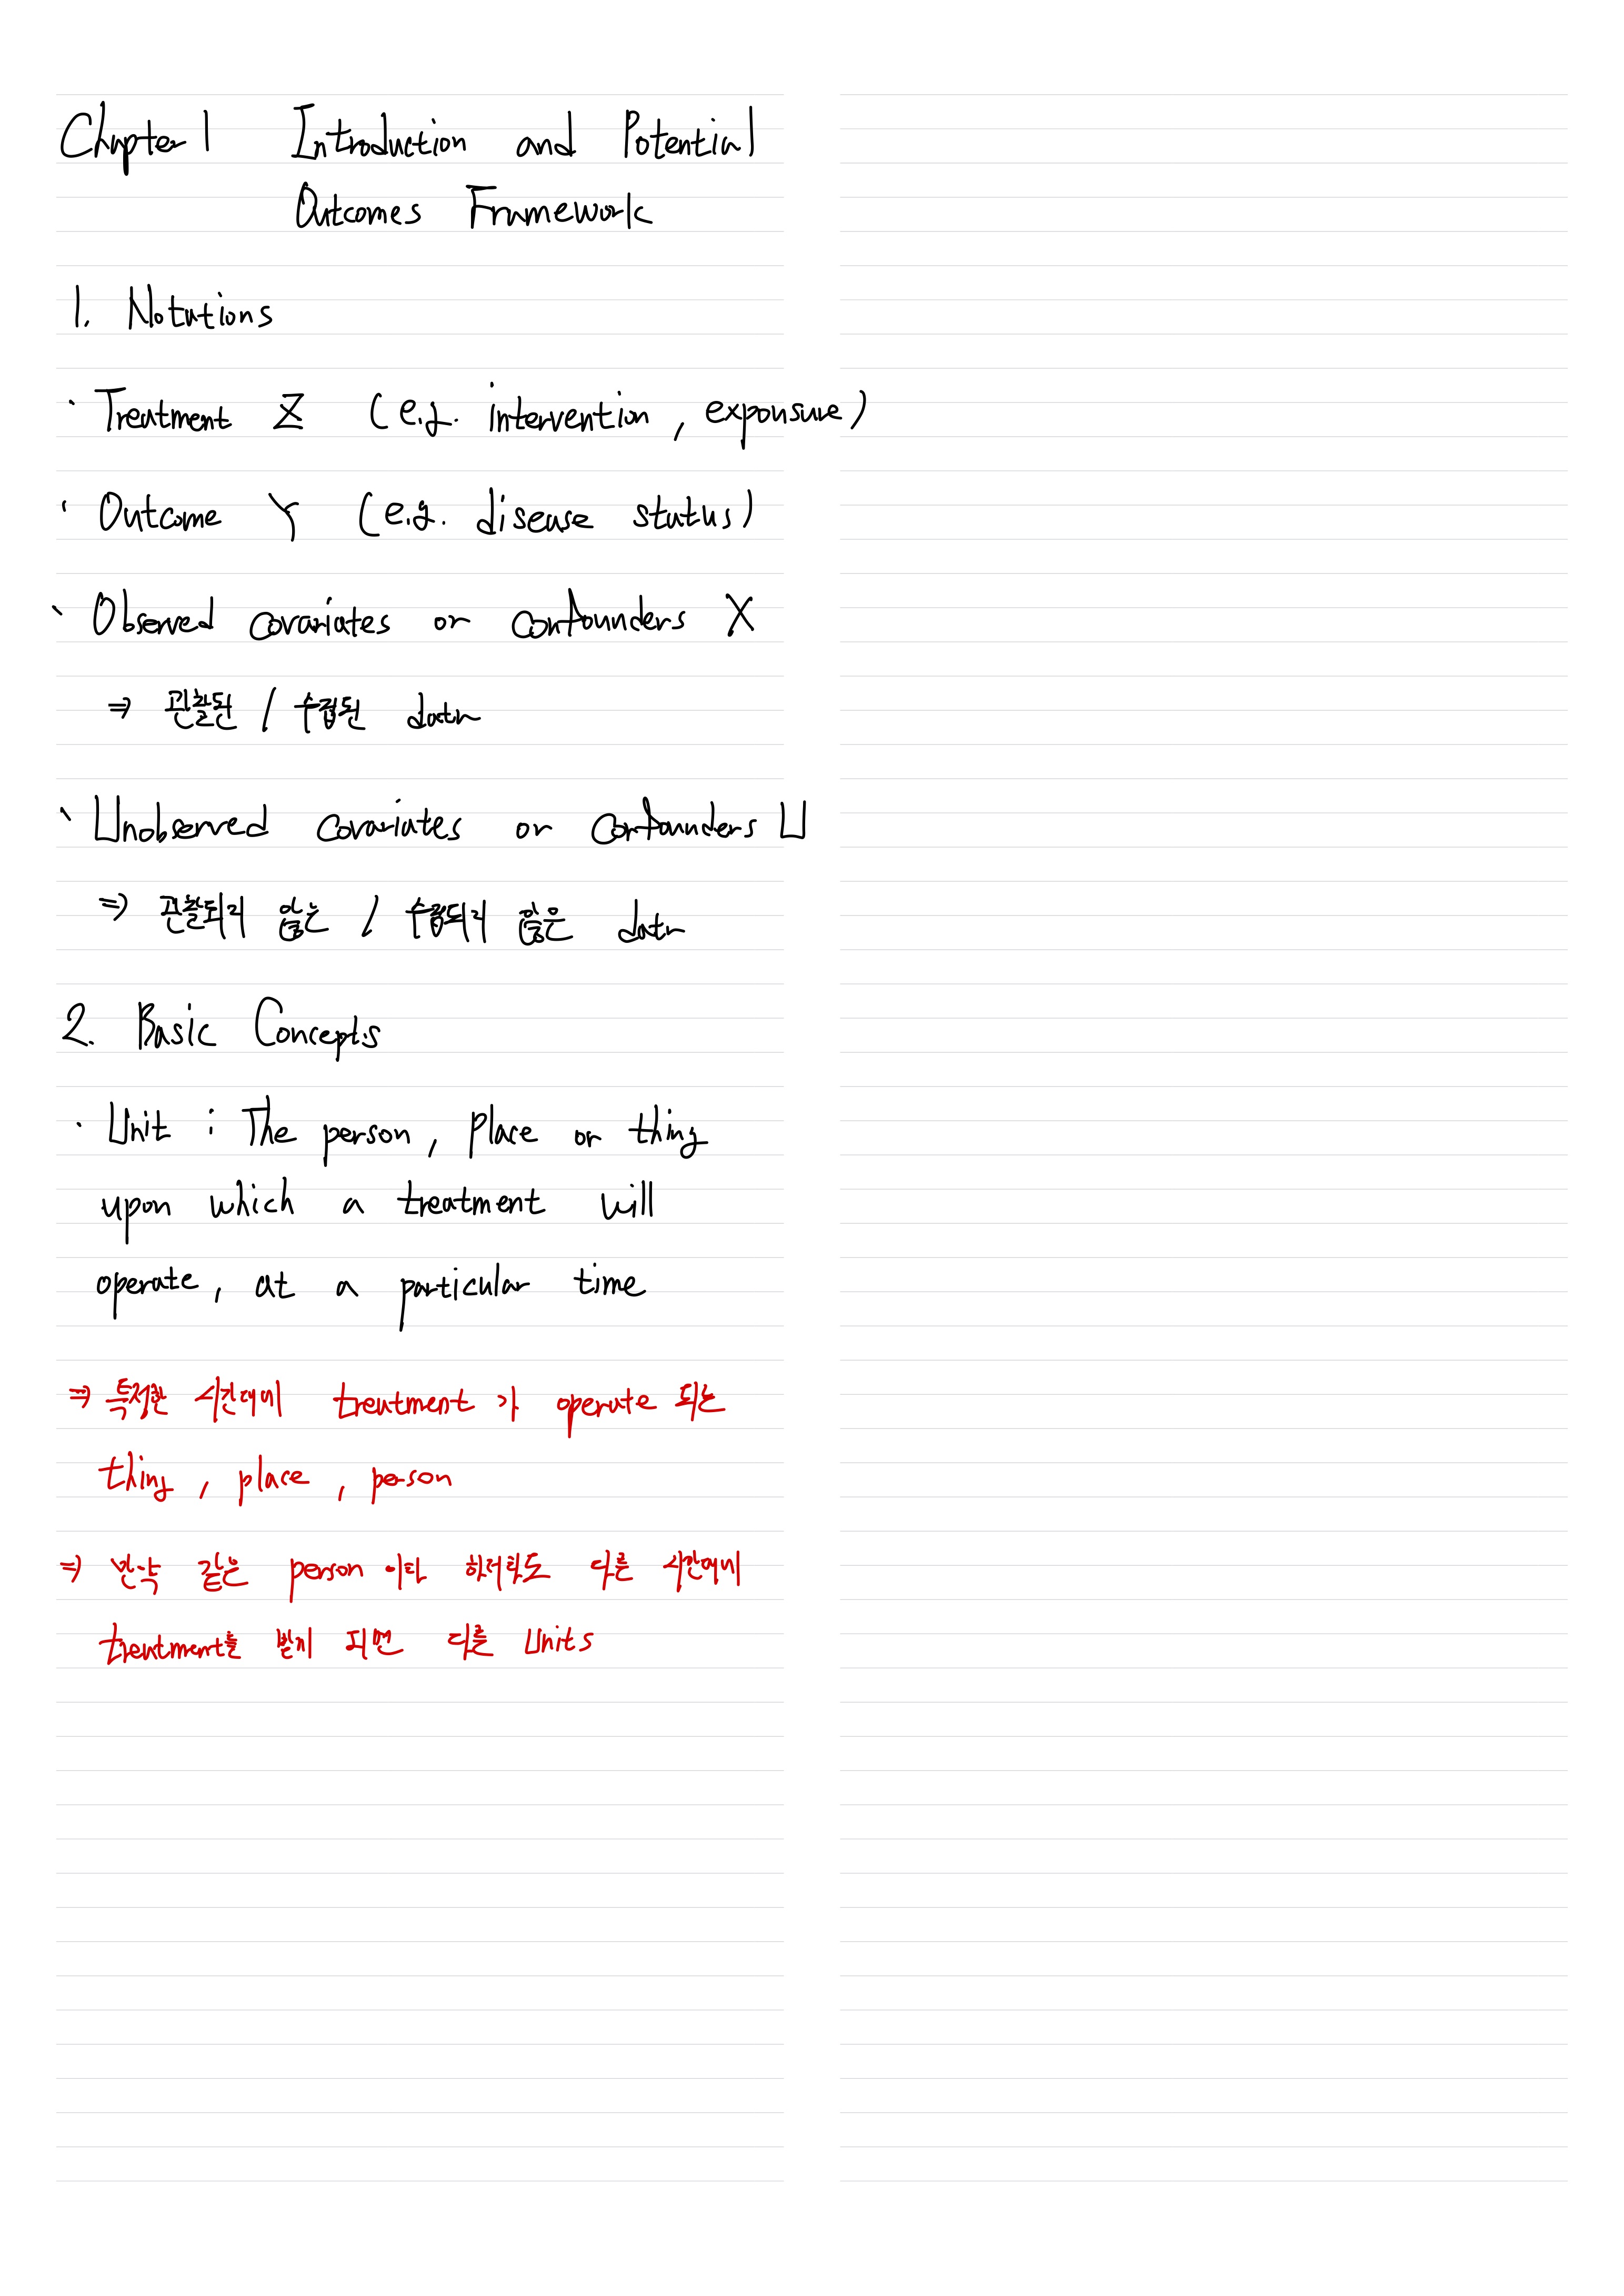 Chapter 1 Introduction and Potential
Outcomes Framework
1. Notations
· Treatment Z (e.g. intervention, exponsure)
· Outcome Y (e.g. disease status)
· Observed covariates or confounders X
⇒ 관찰된 / 수집된 data
· Unobserved covariates or confounders U
⇒ 관찰되지 않은 / 수집되지 않은 data
2. Basic Concepts
· Unit : The person, place or thing
upon which a treatment will
operate, at a particular time
⇒ 특정한 시간대에 treatment가 operate 되는
thing, place, person
⇒ 만약 같은 person이라 하더라도 다른 시간대에
treatment를 받게 되면 다른 units